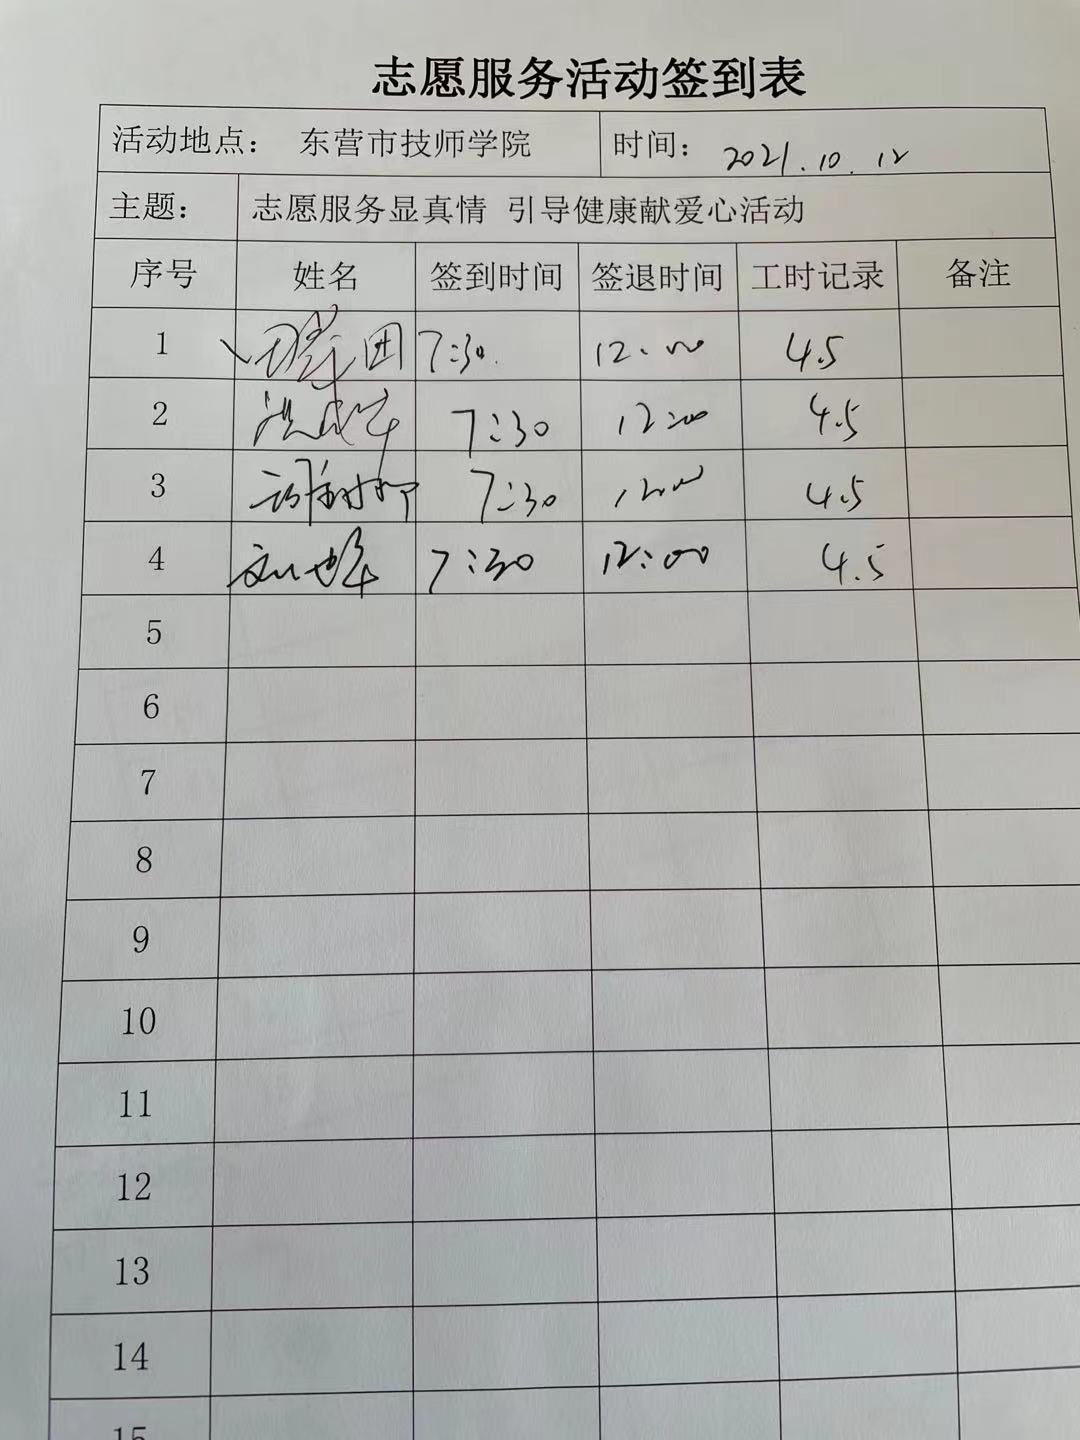 志愿服务活动签到表
活动地点： 东营市技师学院 时间： 2021.10.12
主题： 志愿服务显真情 引导健康献爱心活动
序号 姓名 签到时间 签退时间 工时记录 备注
1 7:30. 12:00 4.5
2 7:30 12:00 4.5
3 7:30 12:00 4.5
4 7:30 12:00 4.5
5
6
7
8
9
10
11
12
13
14
15